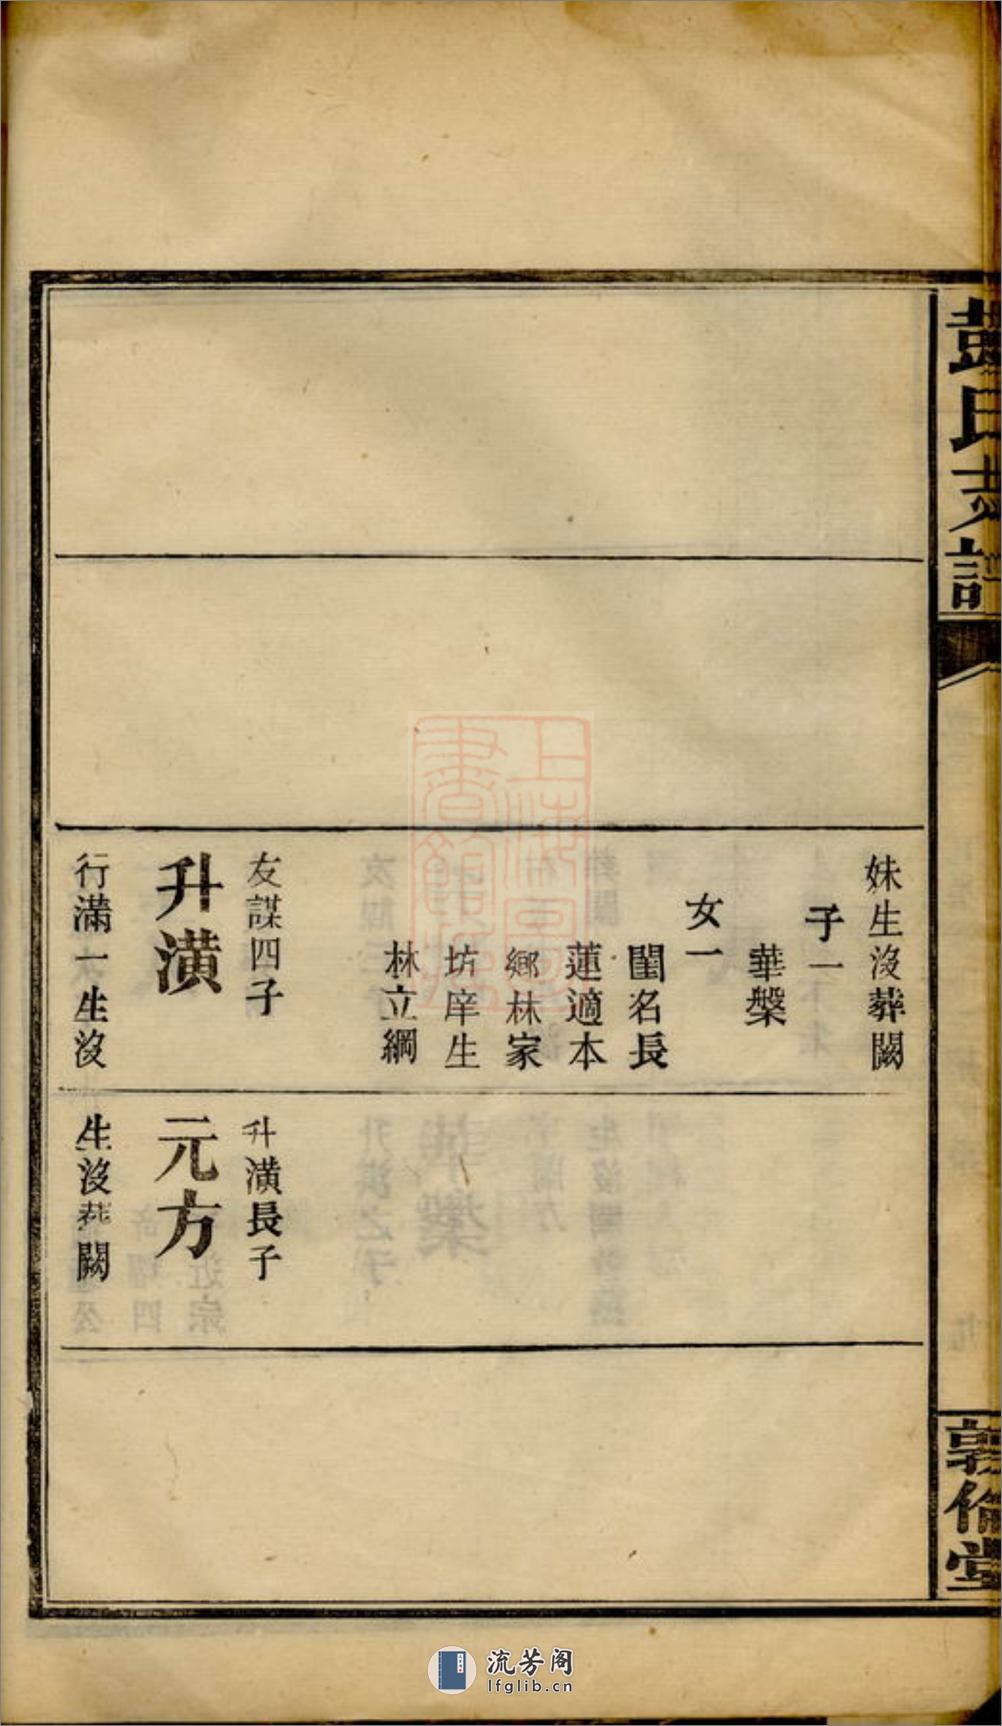 彭氏支譜
敦倫堂
妹生沒葬闕
子一
華槃
女一
閨名長
蓮適本
鄉林家
坊庠生
林立綱
友謀四子
升潢
行滿一生沒
升潢長子
元方
生沒葬闕
上海圖書館藏
流芳阁
lfglib.cn